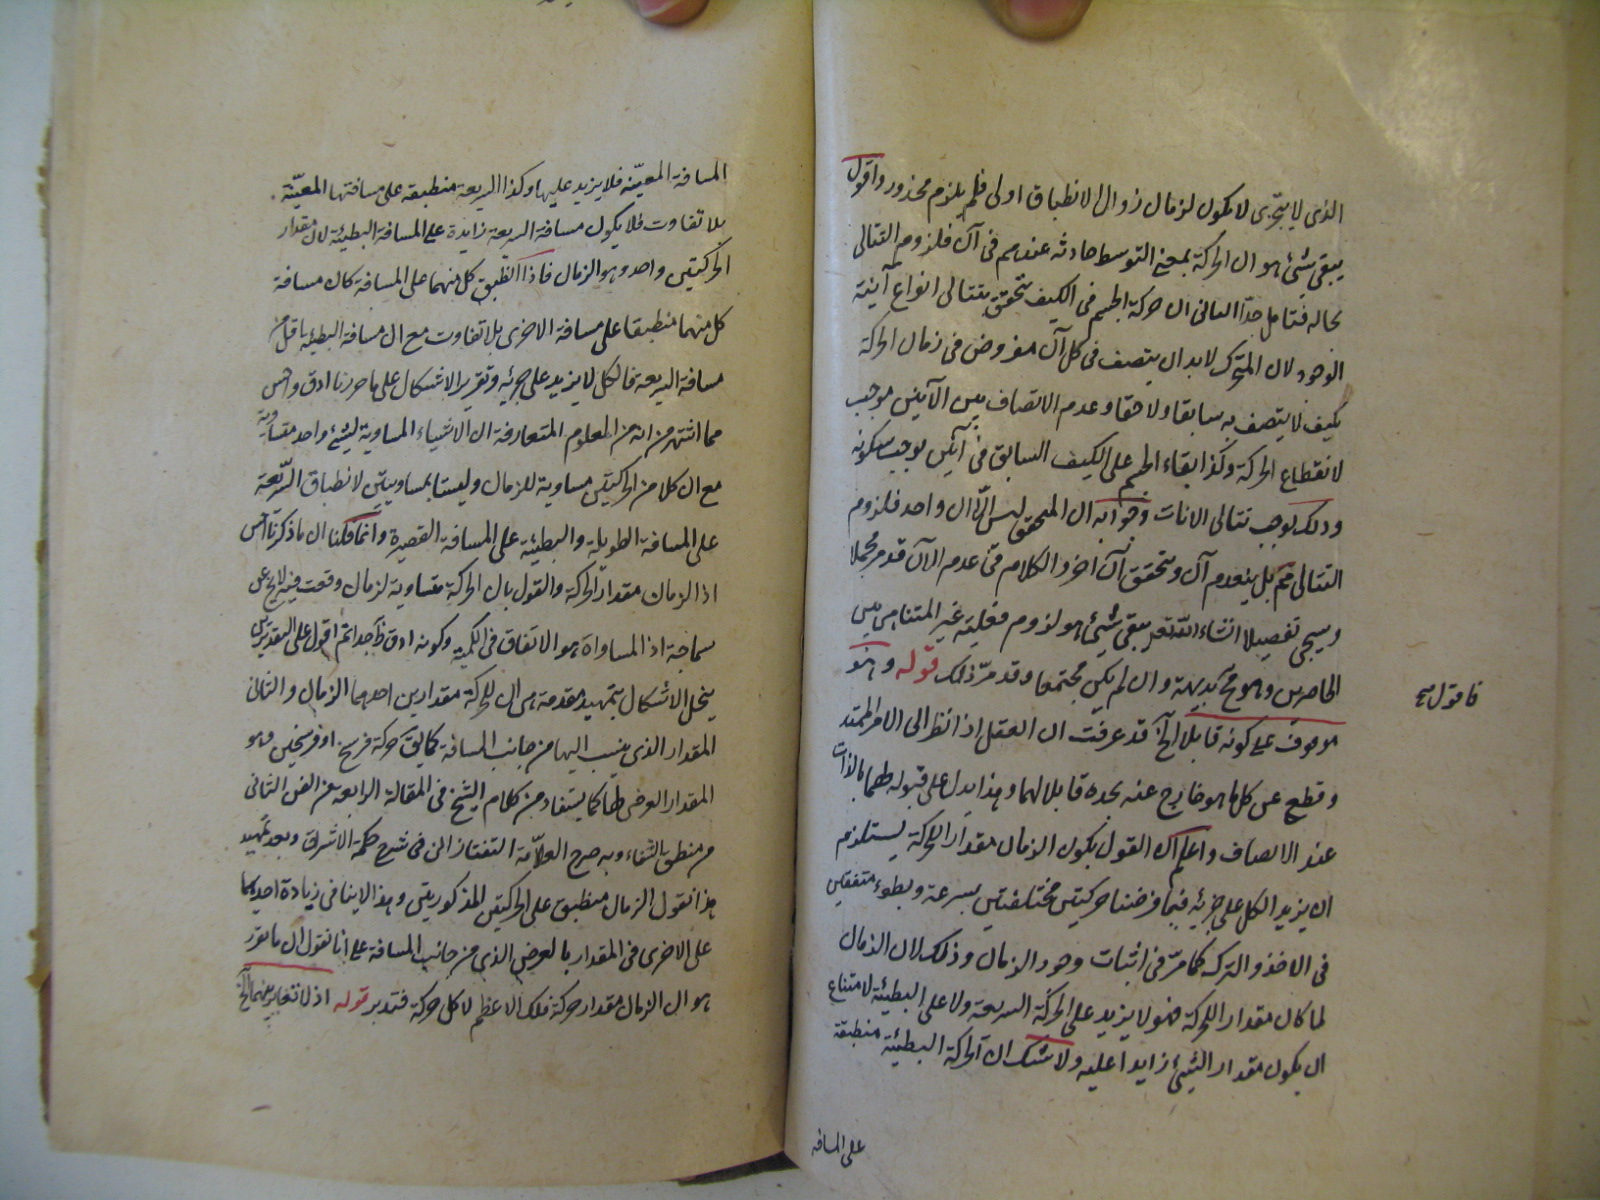 الذى لا يتجزى لا يكون لزمان زوال الانطباق اولى فلم يلزم محذور واقول
يبقى شئ هو ان الحركة بمعنى التوسط حادثة عندهم فى آن فلزوم التتالى
بحاله فتامل جدا الثانى ان حركة الجسم فى الكيف تتحقق بتتالى انواع آنية
الوجود لان المتحرك لابد ان يتصف فى كل آن مفروض فى زمان الحركة
بكيف لا يتصف به سابقا ولاحقا وعدم الاتصاف بين الآنين موجب
لانقطاع الحركة وكذا بقاء الجسم على الكيف السابق فى آنين يوجب سكونه
وذلك يوجب تتالى الانات وجوابه ان المتحقق ليس الا آن واحد فلزوم
التتالى مم بل ينعدم آن ويتحقق آن اخر والكلام فى عدم الآن قد مر مجملا
وسيجى تفصيلا انشاء الله تعم يبقى شئ هو لزوم فعلية غير المتناهى بين
الحاصرين وهو مح بديهة وان لم يكن مجتمعا وقد مر ذلك قوله وهو
موقوف على كونه قابلا الخ قد عرفت ان العقل اذا نظر الى الامر الممتد
وقطع عن كل ما هو خارج عنه يجده قابلا لهما وهذا يدل على قبوله لهما بالذات
عند الانصاف واعلم ان القول بكون الزمان مقدار الحركة يستلزم
ان يزيد الكل على جزئه فيما فرضنا حركتين مختلفتين بسرعة وبطوء متفقتين
فى الاخذ والترك كما مر فى اثبات وجود الزمان وذلك لان الزمان
لما كان مقدار الحركة فهو لا يزيد على الحركة السريعة ولا على البطيئة لامتناع
ان يكون مقدار الشئ زايدا عليه ولا شك ان الحركة البطيئة منطبقة
على المسافة
فاقول مح
المسافة المعينة فلا يزيد عليها وكذا السريعة منطبقة على مسافتها المعينة
بلا تفاوت فلا يكون مسافة السريعة زايدة على المسافة البطيئة لان مقدار
الحركتين واحد وهو الزمان فاذا انطبق كل منهما على المسافة كان مسافة
كل منهما منطبقا على مسافة الاخرى بلا تفاوت مع ان مسافة البطيئة اقل من
مسافة السريعة فالكل لا يزيد على جزئه وتقرير الاشكال على ما حررنا ادق واحسن
مما اشتهر من انه من المعلوم المتعارفة ان الاشياء المساوية لشئ واحد متساوية
مع ان كلا من الحركتين مساوية للزمان وليستا بمساويتين لانطباق السريعة
على المسافة الطويلة والبطيئة على المسافة القصيرة وانما قلنا ان ما ذكرنا احسن
اذ الزمان مقدار الحركة والقول بان الحركة متساوية لزمان وقعت فيه لا يخ عن
سماجة اذ المساواة هو الاتفاق فى الكمية وكونه ادق ظ جدا ثم اقول على التقديرين
ينحل الاشكال بتمهيد مقدمة هى ان للحركة مقدارين احدهما الزمان والثانى
المقدار الذى ينسب اليها من جانب المسافة كما يق حركة فرسخ او فرسخين وهو
المقدار العرضى لها كما يستفاد من كلام الشيخ فى المقالة الرابعة من الفن الثانى
من منطق الشفاء وبه صرح العلامة التفتازانى فى شرح حكمة الاشراق وبعد تمهيد
هذا نقول الزمان منطبق على الحركتين المذكورتين وهذا لا ينافى زيادة احديهما
على الاخرى فى المقدار بالعرض الذى من جانب المسافة على انا نقول ان ما تقرر
هو ان الزمان مقدار حركة فلك الاعظم لا كل حركة فتدبر قوله اذ لا تغاير بينهما الخ